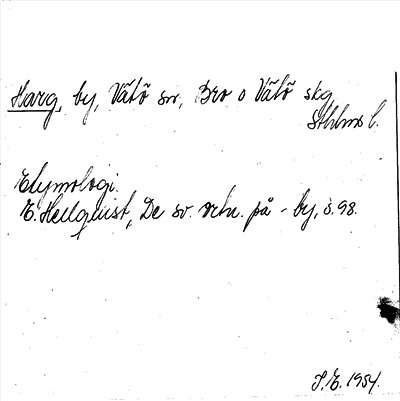 Harg, by, Vätö sn, Bro o Vätö skg
Sthlms l.
Etymologi.
E. Hellquist, De sv. ortn. på - by, s. 98.
S.E. 1954.